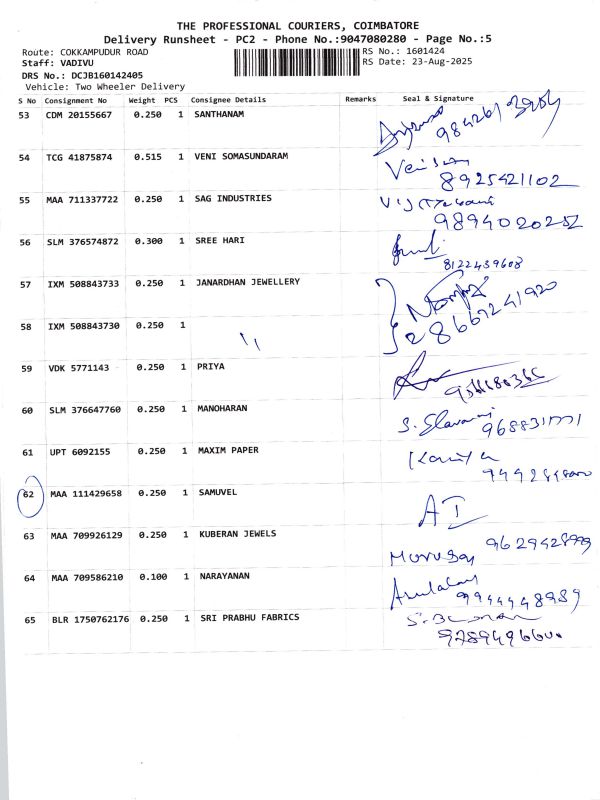 THE PROFESSIONAL COURIERS, COIMBATORE
Delivery Runsheet - PC2 - Phone No.:9047080280 - Page No.:5
Route: COKKAMPUDUR ROAD RS No.: 1601424
Staff: VADIVU RS Date: 23-Aug-2025
DRS No.: DCJB160142405
Vehicle: Two Wheeler Delivery
S No Consignment No Weight PCS Consignee Details Remarks Seal & Signature
53 CDM 20155667 0.250 1 SANTHANAM
54 TCG 41875874 0.515 1 VENI SOMASUNDARAM
8925421102
55 MAA 711337722 0.250 1 SAG INDUSTRIES
9894020252
56 SLM 376574872 0.300 1 SREE HARI
8122439608
57 IXM 508843733 0.250 1 JANARDHAN JEWELLERY
58 IXM 508843730 0.250 1 \\
59 VDK 5771143 0.250 1 PRIYA
60 SLM 376647760 0.250 1 MANOHARAN
61 UPT 6092155 0.250 1 MAXIM PAPER
62 MAA 111429658 0.250 1 SAMUVEL
63 MAA 709926129 0.250 1 KUBERAN JEWELS
64 MAA 709586210 0.100 1 NARAYANAN
65 BLR 1750762176 0.250 1 SRI PRABHU FABRICS